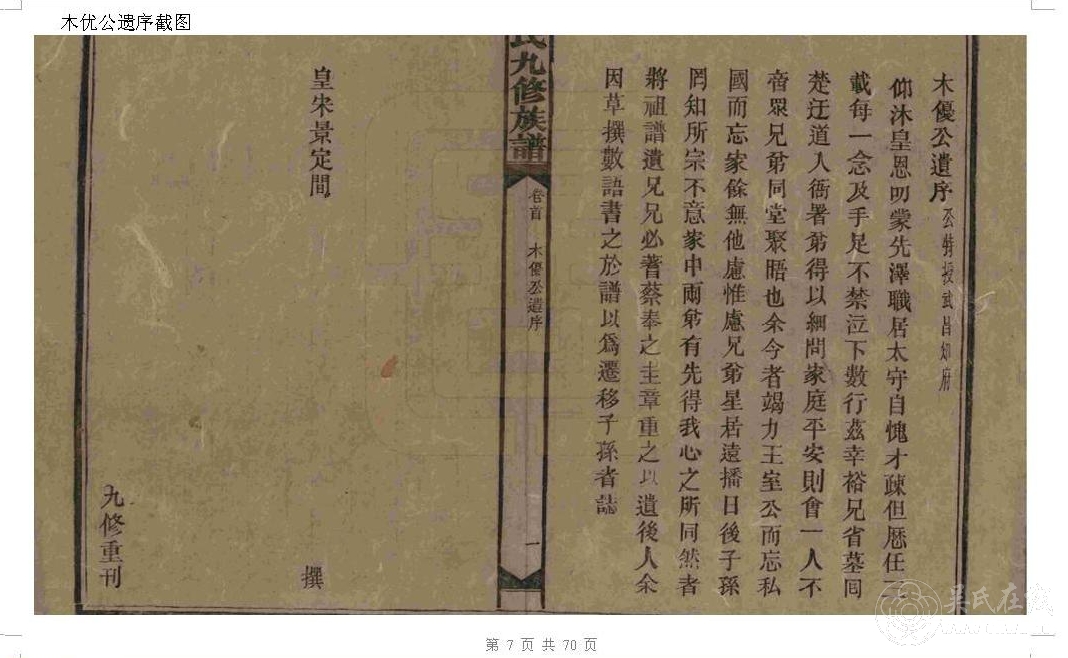 木优公遗序截图
木優公遺序 公特授武昌知府
仰沐皇恩叨蒙先澤職居太守自愧才疎但厯任
載每一念及手足不禁泣下數行茲幸裕兄省墓囘
楚迂道入衙署弟得以細問家庭平安則會一人不
啻眾兄弟同堂聚晤也余今者竭力王室公而忘私
國而忘家餘無他慮惟慮兄弟星居遠播日後子孫
罔知所宗不意家中兩弟有先得我心之所同然者
將祖譜遺兄兄必蓍蔡奉之圭章重之以遺後人余
因草撰數語書之於譜以爲遷移子孫者誌
氏九修族譜
卷首 木優公遺序 一
皇宋景定間 撰
九修重刊
吴氏在线
第 7 页 共 70 页